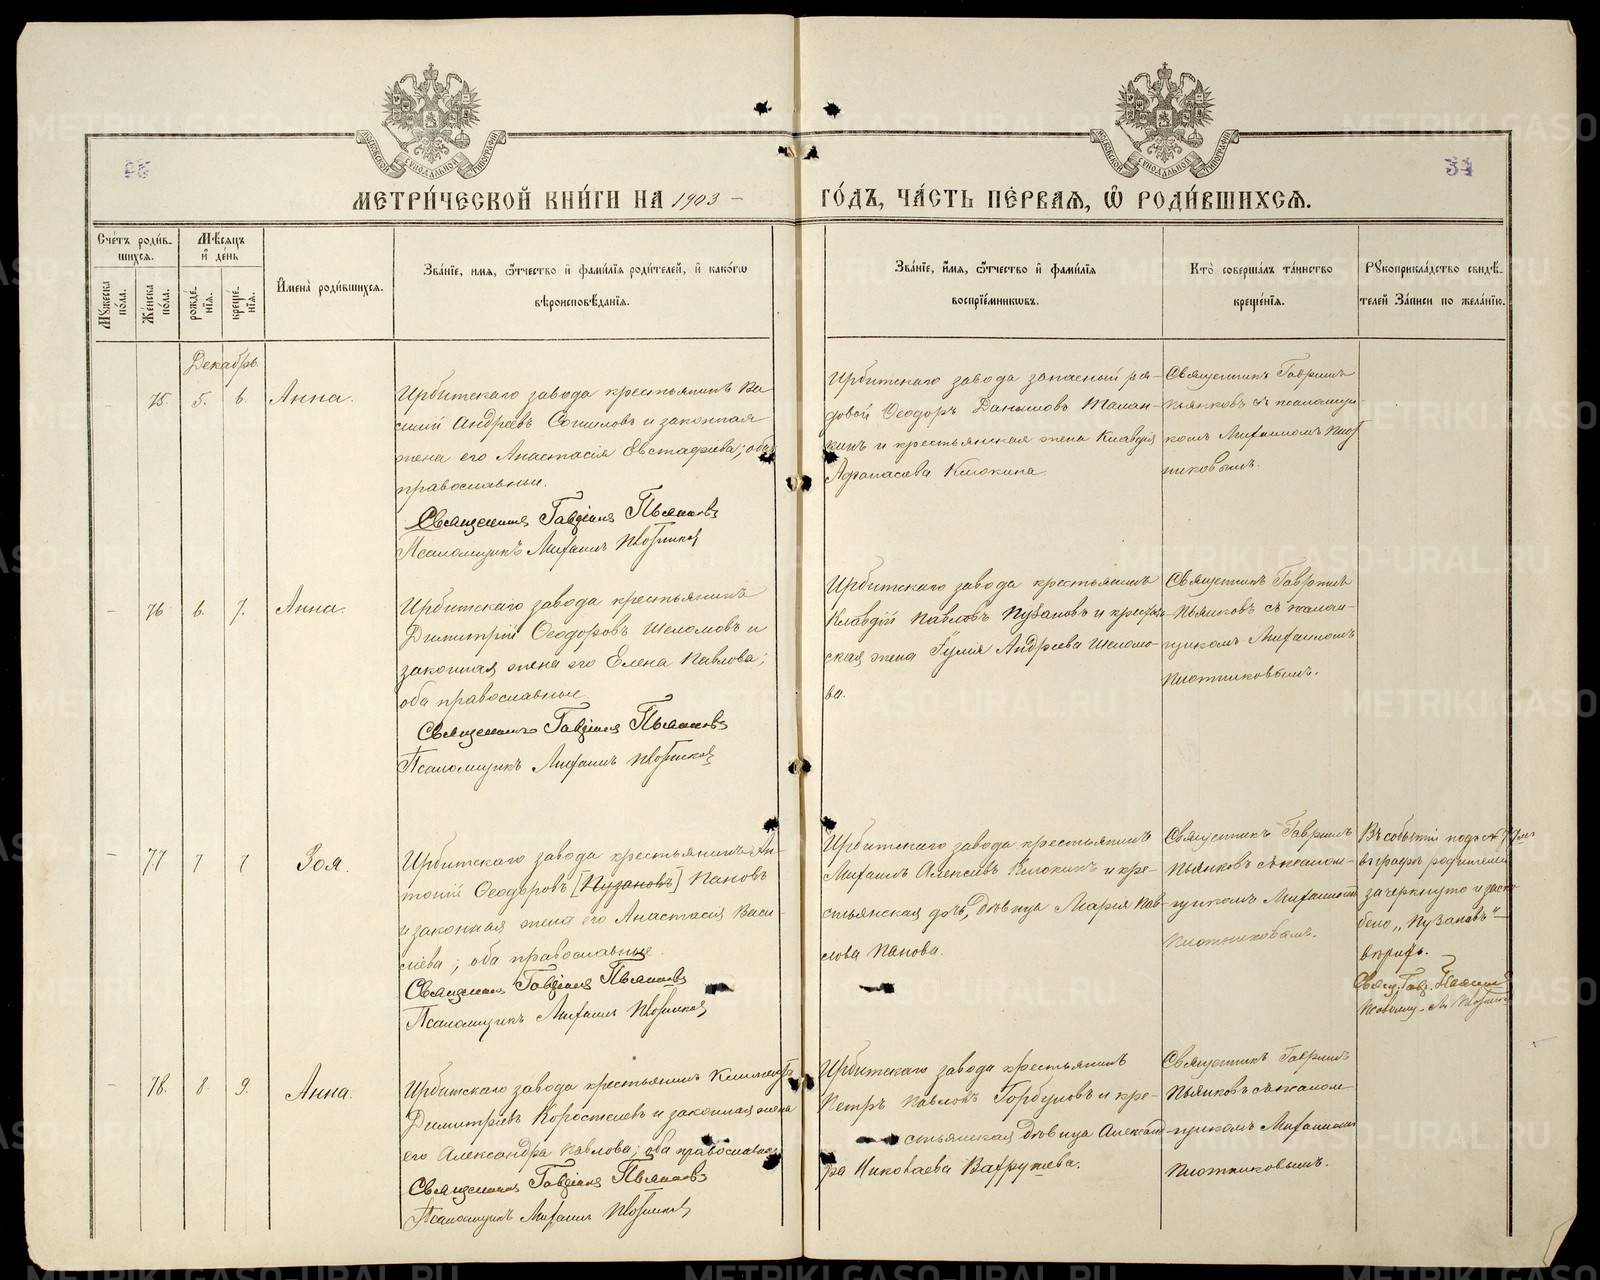 МЕТРИ́ЧЕСКОЙ КНИ́ГИ НА 1903 –
ГО́ДЪ, ЧА́СТЬ ПЕ́РВАѦ, Ѿ РОДИ́ВШИХСѦ.
34
Сче́тъ роди́в-
шихсѧ.
Мꙋжеска
по́ла.
Же́нска
по́ла.
Мѣ́сѧцъ
и҆ де́нь
рожде́-
нїѧ.
креще́-
нїѧ.
И҆мена̀ роди́вшихсѧ.
Зва́нїе, имѧ, ѻ҆́тчество и҆ фами́лїѧ роди́телей, и҆ како́гѡ
вѣроисповѣ́данїѧ.
Зва́нїе, и҆́мѧ, ѻ҆́тчество и҆ фами́лїѧ
воспрїе́мникѡвъ.
Кто̀ соверша́лъ та́инство
креще́нїѧ.
Рꙋкоприкла́дство свидѣ́-
телей за́писи по жела́нїю.
Декабрь.
75. 5. 6. Анна.
Ирбитскаго завода крестьянинъ Ва-
силій Андреевъ и законная
жена его Анастасія Евстафіева; оба
православные.
Священникъ Гавріилъ Пьянковъ
Псаломщикъ Михаилъ Плотников
Ирбитскаго завода запасный ря-
довой Ѳеодоръ Даниловъ Талан-
кинъ и крестьянская жена Клавдія
Афанасьева Клюкина.
Священникъ Гавріилъ
Пьянковъ съ псаломщи-
комъ Михаиломъ Плот
никовымъ.
76 6. 7. Анна.
Ирбитскаго завода крестьянинъ
Димитрій Ѳеодоровъ Шеломовъ и
законная жена его Елена Павлова;
оба православные.
Священникъ Гавріилъ Пьянковъ
Псаломщикъ Михаилъ Плотников
Ирбитскаго завода крестьянинъ
Клавдій Павловъ Пузановъ и крестьян-
ская жена Юлія Андреева Шеломо-
ва.
Священникъ Гавріилъ
Пьянковъ съ псалом-
щикомъ Михаиломъ
Плотниковымъ.
77 7 7 Зоя.
Ирбитскаго завода крестьянинъ Ан-
тоній Ѳеодоровъ [Пузановъ] Пановъ
и законная жена его Анастасія Васи-
лиева; оба православные.
Священникъ Гавріилъ Пьянковъ
Псаломщикъ Михаилъ Плотников
Ирбитскаго завода крестьянинъ
Михаилъ Алексеевъ Клюкинъ и кре-
стьянская дочь, дѣвица Марія Пав-
лова Панова.
Священникъ Гавріилъ
Пьянковъ съ псалом-
щикомъ Михаиломъ
Плотниковымъ.
Въ событіи подъ № 77-мъ
въ графѣ родителей
зачеркнуто и заско
блено „Пузановъ"
вѣрить.
Свящ. Гавр. Пьянков
Псаломщ. М. Плотников
78. 8 9. Анна.
Ирбитскаго завода крестьянинъ Климентъ
Димитріевъ Коростелевъ и законная жена
его Александра Павлова; оба православные
Священникъ Гавріилъ Пьянковъ
Псаломщикъ Михаилъ Плотников
Ирбитскаго завода крестьянинъ
Петръ Павловъ Горбуновъ и кре-
стьянская дѣвица Александ-
ра Николаева Вахрушева.
Священникъ Гавріилъ
Пьянковъ съ псалом-
щикомъ Михаиломъ
Плотниковымъ.
METRIKI.GASO-URAL.RU